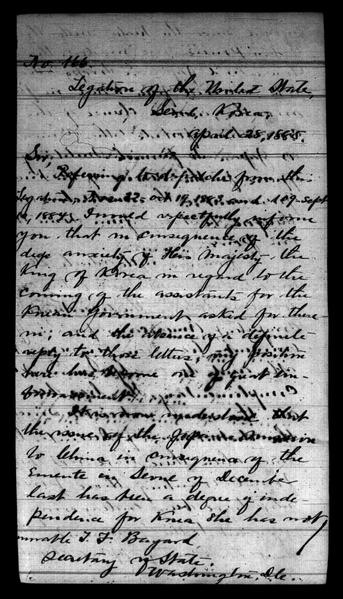 No. 166.
Legation of the United States,
Seoul, Korea,
April 28, 1885.
Sir,
Referring to despatches from this
Legation, Nos. 22, Oct 19, 1883, and 109, Sept
1884, I would respectfully inform
you that in consequence of the
deep anxiety of His Majesty the
King of Korea in regard to the
coming of the assistants for the
Korean Government asked for there-
in; and the absence of a definite
reply to those letters, my position
here has become one of great em-
barrassment.
It is now understood that
the issue of the Japanese mission
to China in consequence of the
Emeute in Seoul of December
last has been a degree of inde-
pendence for Korea she has not
Honorable T. F. Bayard
Secretary of State.
Washington, D.C.